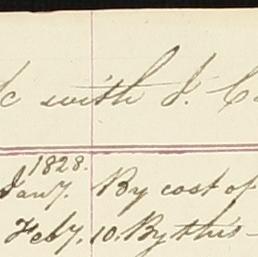 c with J. C
1828.
Jany. By cost of
Feby. 10. By this